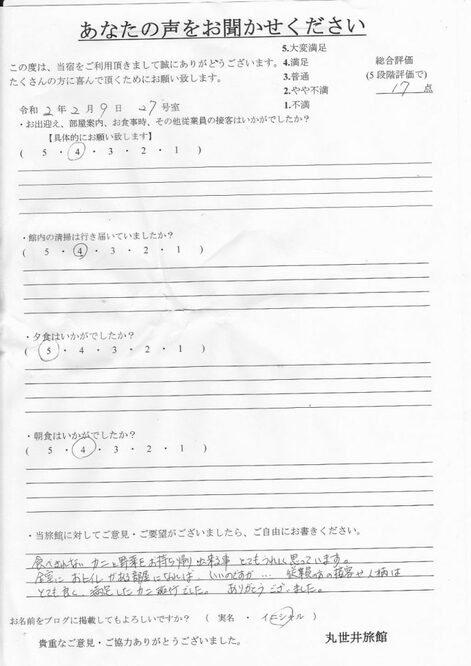 あなたの声をお聞かせください
この度は、当宿をご利用頂きまして誠にありがとうございます。
たくさんの方に喜んで頂くためにお願い致します。
5.大変満足
4.満足
3.普通
2.やや不満
1.不満
総合評価
(5段階評価で)
17 点
令和 2年 2月 9日 27号室
・お出迎え、部屋案内、お食事時、その他従業員の接客はいかがでしたか?
【具体的にお願い致します】
( 5 ・ 4 ・ 3 ・ 2 ・ 1 )
・館内の清掃は行き届いていましたか?
( 5 ・ 4 ・ 3 ・ 2 ・ 1 )
・夕食はいかがでしたか?
( 5 ・ 4 ・ 3 ・ 2 ・ 1 )
・朝食はいかがでしたか?
( 5 ・ 4 ・ 3 ・ 2 ・ 1 )
・当旅館に対してご意見・ご要望がございましたら、ご自由にお書きください。
食べきれない カニと野菜をお持ち帰り出来る事 とてもうれしく思っています。
全室に おトイレがある部屋になれば、いいのですが… 従業員の接客や人柄は
とても良く、満足したカニ旅行でした。 ありがとうございました。
お名前をブログに掲載してもよろしいですか? ( 実名 ・ イニシャル )
貴重なご意見・ご協力ありがとうございました。
丸世井旅館